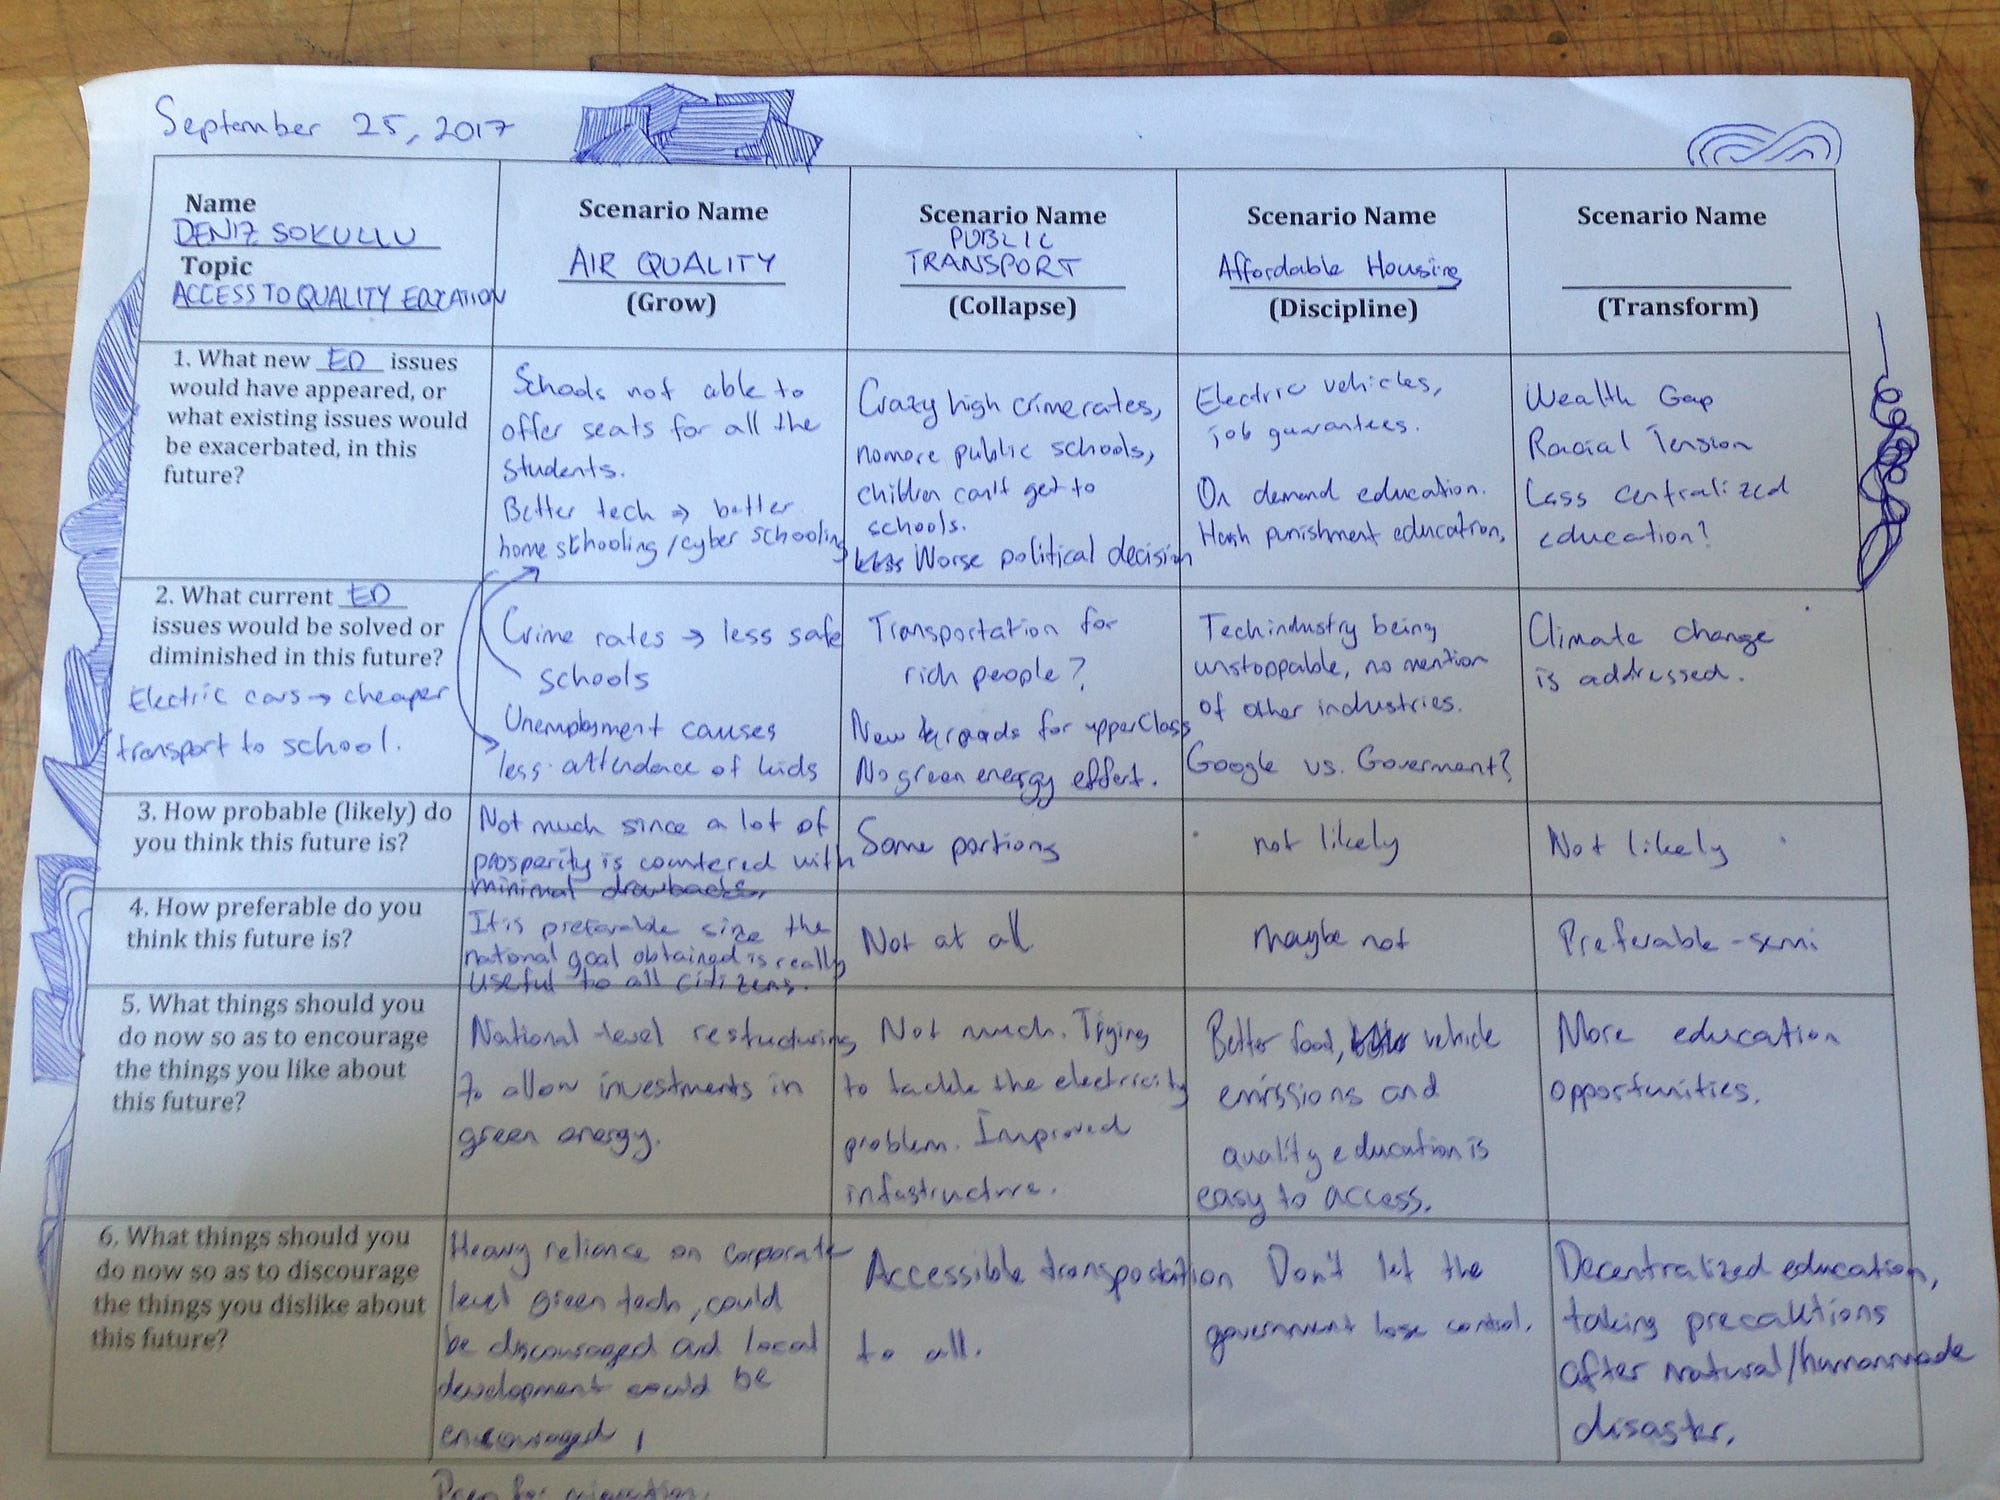 September 25, 2017
Name
DENIZ SOKULLU
Topic
ACCESS TO QUALITY EDUCATION
Scenario Name
AIR QUALITY
(Grow)
Scenario Name
PUBLIC
TRANSPORT
(Collapse)
Scenario Name
Affordable Housing
(Discipline)
Scenario Name
(Transform)
1. What new ED issues
would have appeared, or
what existing issues would
be exacerbated, in this
future?
Schools not able to
offer seats for all the
students.
Better tech → better
home schooling/cyber schooling
Crazy high crime rates,
nomore public schools,
children can't get to
schools.
less Worse political decision
Electric vehicles,
job guarantees.
On demand education.
Harsh punishment education,
Wealth Gap
Racial Tension
Less centralized
education?
2. What current ED
issues would be solved or
diminished in this future?
Electric cars → cheaper
transport to school.
Crime rates → less safe
schools
Unemployment causes
less attendace of kids
Transportation for
rich people?
New roads for upperClass
No green energy effort.
Tech industry being
unstoppable, no mention
of other industries.
Google vs. Goverment?
Climate change
is addressed.
3. How probable (likely) do
you think this future is?
Not much since a lot of
prosperity is countered with
minimal drawbacks.
Some portions
not likely
Not likely
4. How preferable do you
think this future is?
It is preferable size the
national goal obtained is really
useful to all citizens.
Not at all
maybe not
Preferable-semi
5. What things should you
do now so as to encourage
the things you like about
this future?
National-level restucturing
to allow investments in
green energy.
Not much. Trying
to tackle the electricity
problem. Improved
infastructure.
Better food, vehicle
emissions and
quality education is
easy to access.
More education
opportunities.
6. What things should you
do now so as to discourage
the things you dislike about
this future?
Heavy reliance on corporate
level green tech, could
be discouraged and local
development could be
encouraged
Accessible transportation
to all.
Don't let the
government lose control.
Decentralized education,
taking precautions
after natural/humanmade
disaster.
Prep for migration.